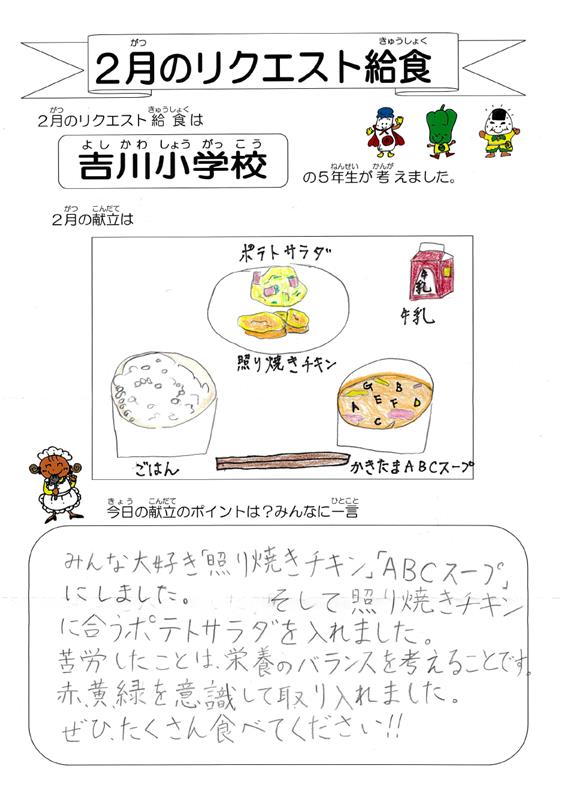 ２月のリクエスト給食
２月のリクエスト給食は
吉川小学校
の５年生が考えました。
２月の献立は
ポテトサラダ
牛乳
牛乳
照り焼きチキン
A B C D E F G
ごはん
かきたまABCスープ
今日の献立のポイントは？みんなに一言
みんな大好き「照り焼きチキン」「ABCスープ」
にしました。 そして照り焼きチキン
に合うポテトサラダを入れました。
苦労したことは、栄養のバランスを考えることです。
赤、黄、緑を意識して取り入れました。
ぜひ、たくさん食べてください!!